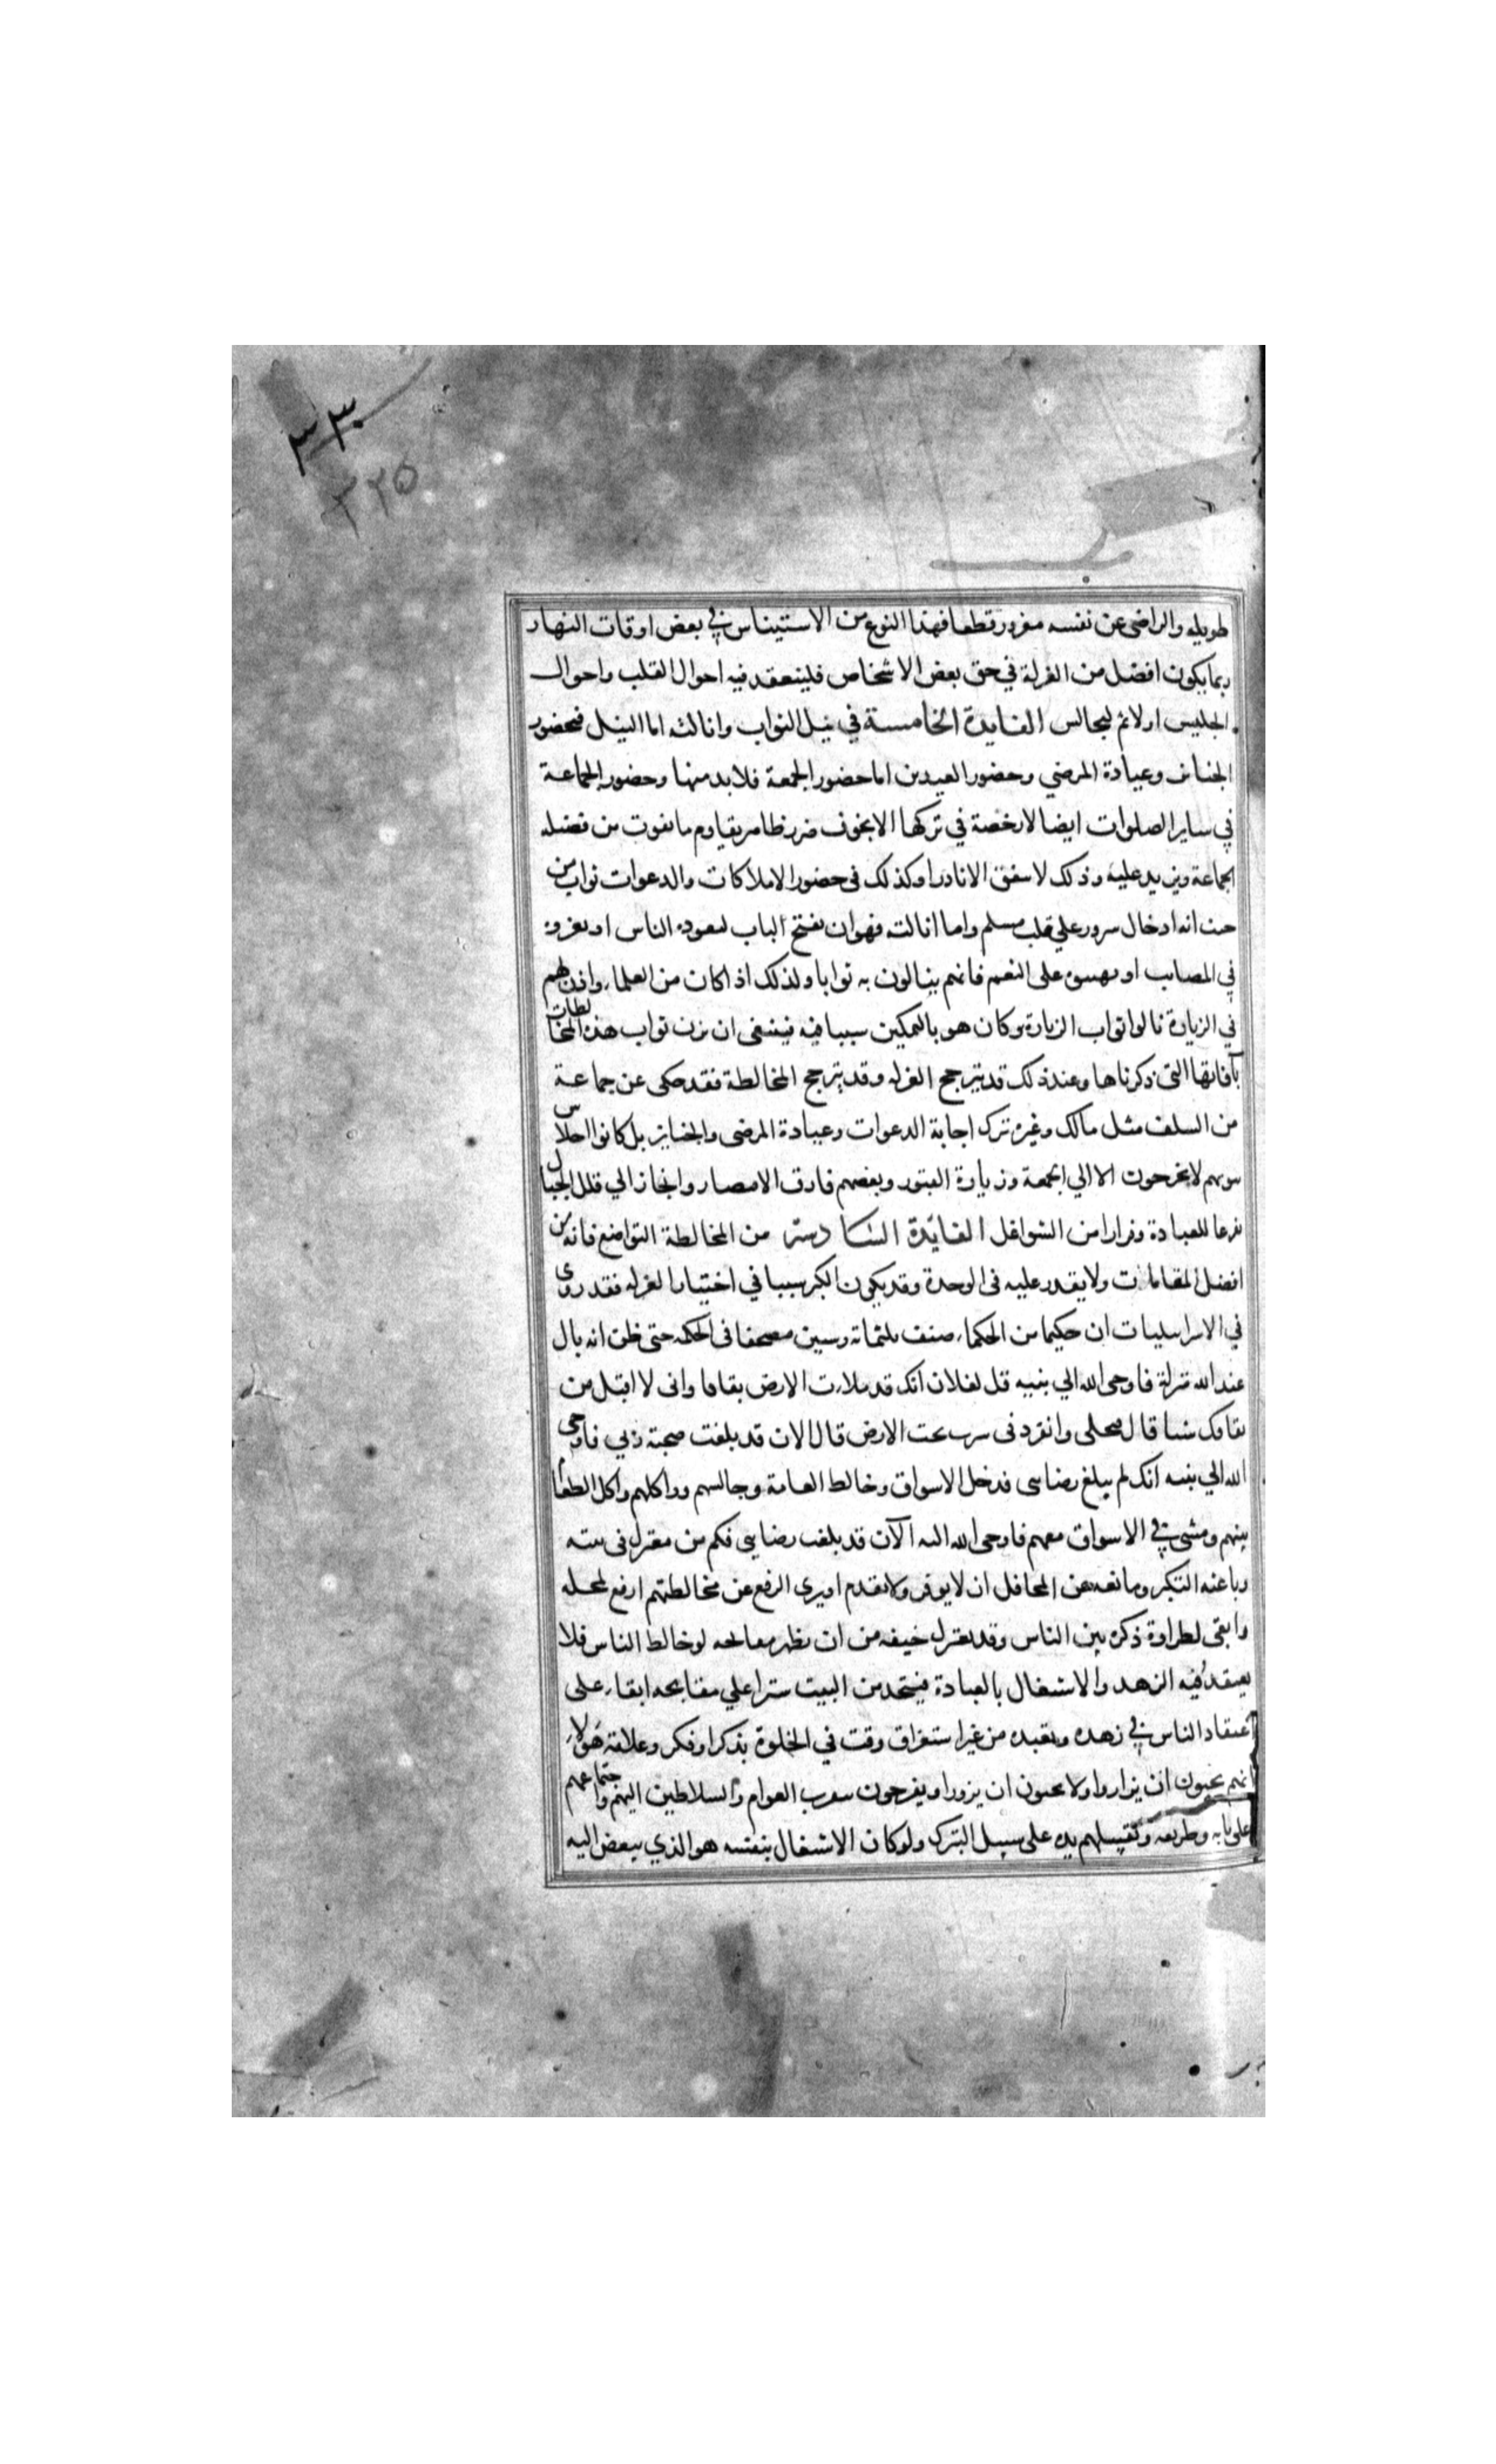 ٣٣٠
٣٢٥
طويله والراضي عن نفسه مغرور قطعا فهذا النوع من الاستيناس في بعض اوقات النهار
ربما يكون افضل من العزلة في حق بعض الاشخاص فليتفقد فيه احوال القلب واحوال
الجليس اولا ثم ليجالس الفايدة الخامسة في نيل الثواب وانالته اما النيل فبحضور
الجنائز وعيادة المرضي وحضور العيدين اما حضور الجمعة فلا بد منها وحضور الجماعة
في ساير الصلوات ايضا لا رخصة في تركها الا بخوف ضرر ظاهر يقاوم ما يفوت من فضيله
الجماعة ويزيد عليه وذلك لا يتفق الا نادرا وكذلك في حضور الاملاكات والدعوات ثواب من
حيث انه ادخال سرور علي قلب مسلم واما انالته فهو ان يفتح الباب ليعوده الناس او يعزوه
في المصايب او يهنوه على النعم فانهم ينالون به ثوابا ولذلك اذا كان من العلماء واذن لهم
في الزيارة نالوا ثواب الزيارة وكان هو بالتمكين سببا فيه فينبغي ان يزن ثواب هذه المخالطات
بآفاتها التي ذكرناها وعند ذلك قد يترجح العزله وقد يترجح المخالطة فقد حكى عن جماعة
من السلف مثل مالك وغيره ترك اجابة الدعوات وعيادة المرضى والجنايز بل كانوا احلاس
بيوتهم لا يخرجون الا الي الجمعة وزيارة القبور وبعضهم فارق الامصار وانحاز الي قلل الجبال
تفرغا للعبادة وفرارا من الشواغل الفائدة السادسة من المخالطة التواضع فانه من
افضل المقامات ولا يقدر عليه في الوحدة وقد يكون الكبر سببا في اختيار العزله فقد روى
في الاسرايليات ان حكيما من الحكماء صنف ثلثمائة وستين مصحفا في الحكمه حتى ظن انه نال
عند الله منزلة فاوحى الله الي نبيه قل لفلان انك قد ملاءت الارض بقاقا واني لا اقبل من
بقاقك شيا قال فتخلى وانفرد في سرب تحت الارض قال الان قد بلغت محبة ربي فاوحى
الله الي نبيه انك لم يبلغ رضاى فدخل الاسواق وخالط العامة وجالسهم وواكلهم واكل الطعام
بينهم ومشى في الاسواق معهم فاوحى الله اليه الآن قد بلغت رضاي فكم من معتزل في بيته
وباعثه التكبر ومانعه عن المحافل ان لا يوقر ولا يقدم او يرى الرفع عن مخالطتهم ارفع لمحله
وابقى لطراوة ذكره بين الناس وقد يعتزل خيفه من ان يظهر مقابحه لو خالط الناس فلا
يعتقد فيه الزهد والاشتغال بالعبادة فيتخذ من البيت سترا علي مقابحه ابقاء على
اعتقاد الناس في زهده وتعبده من غير استغراق وقت في الخلوة بذكر او فكر وعلامة هولاء
انهم يحبون ان يزاروا ولا يحبون ان يزوروا ويفرحون بتقرب العوام والسلاطين اليهم واجتماعهم
على بابه وطريقه وتقبيلهم يده على سبيل التبرك ولو كان الاشتغال بنفسه هو الذي يبغض اليه